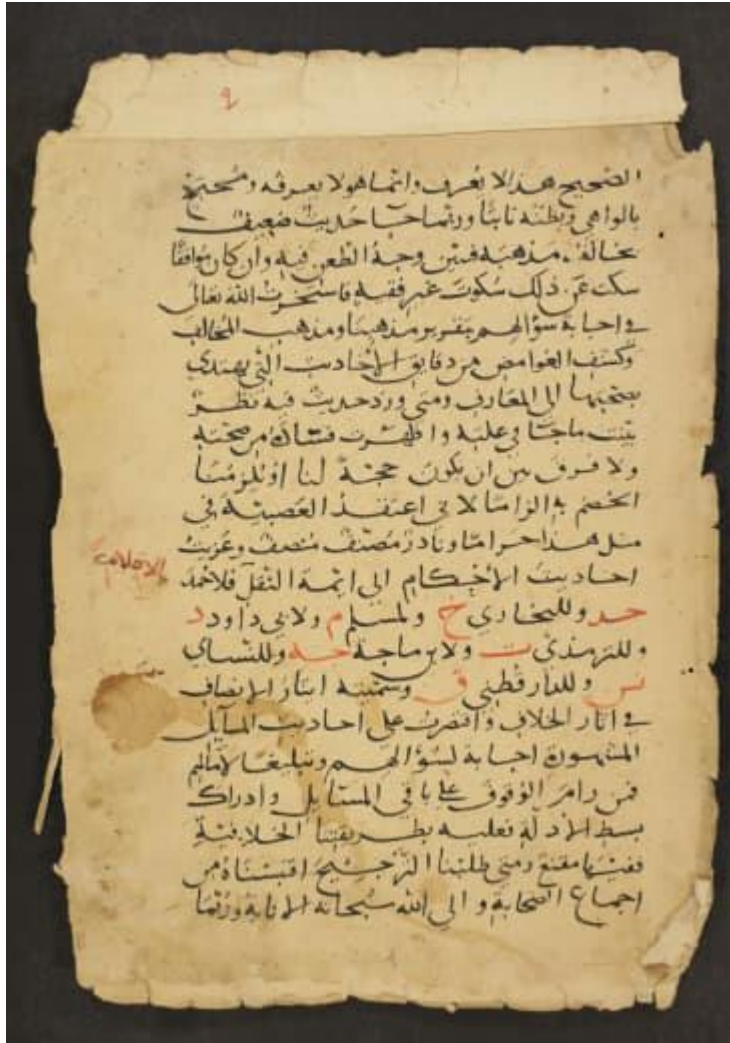 ٩
الصحيح هذا لا يعرف وانما هو لا يعرفه ومحتج
بالواهي ويظنه ثابتا وربما جا حديث ضعيف
بخالف مذهبه فبين وجه الطعن فيه وان كان موافقا
سكت عن ذلك سكوت غير فقيه فاستخرت الله تعالى
في اجابة سؤالهم بتقرير مذهبنا ومذهب المخالف
وكشف الغوامض من دقايق الاحاديث التي يهتدي
بصحتها الى المعارف ومتى ورد حديث فيه نظر
بينت ما جا في عليه واظهرت فساده من صحته
ولا فرق بين ان يكون حجة لنا او يلزمنا
الخصم به الزاما لا في اعتقد العصبية في
مثل هذا حراما ونادر مصنف منصف وعزيت
احاديث الاحكام الى ايمة النقل فلاحمد
حد وللبخاري خ ولمسلم م ولابي داود د
وللترمذي ت ولابن ماجة جه وللنساى
نس وللدارقطني ق وسميته ايثار الانصاف
في اثار الخلاف واقتصرت على احاديث المسايل
المشهورة اجابة لسؤالهم وتبليغا لامالهم
فمن رام الوقوف على باقي المسايل وادراك
بسط الادلة فعليه بطريقتنا الخلافية
ففيها مقنع ومتى طلبنا الترجيح اقتبسناه من
اجماع الصحابة والى الله سبحانه الانابة وربما